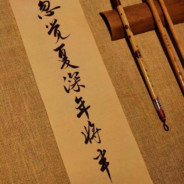 忽觉夏深年将半